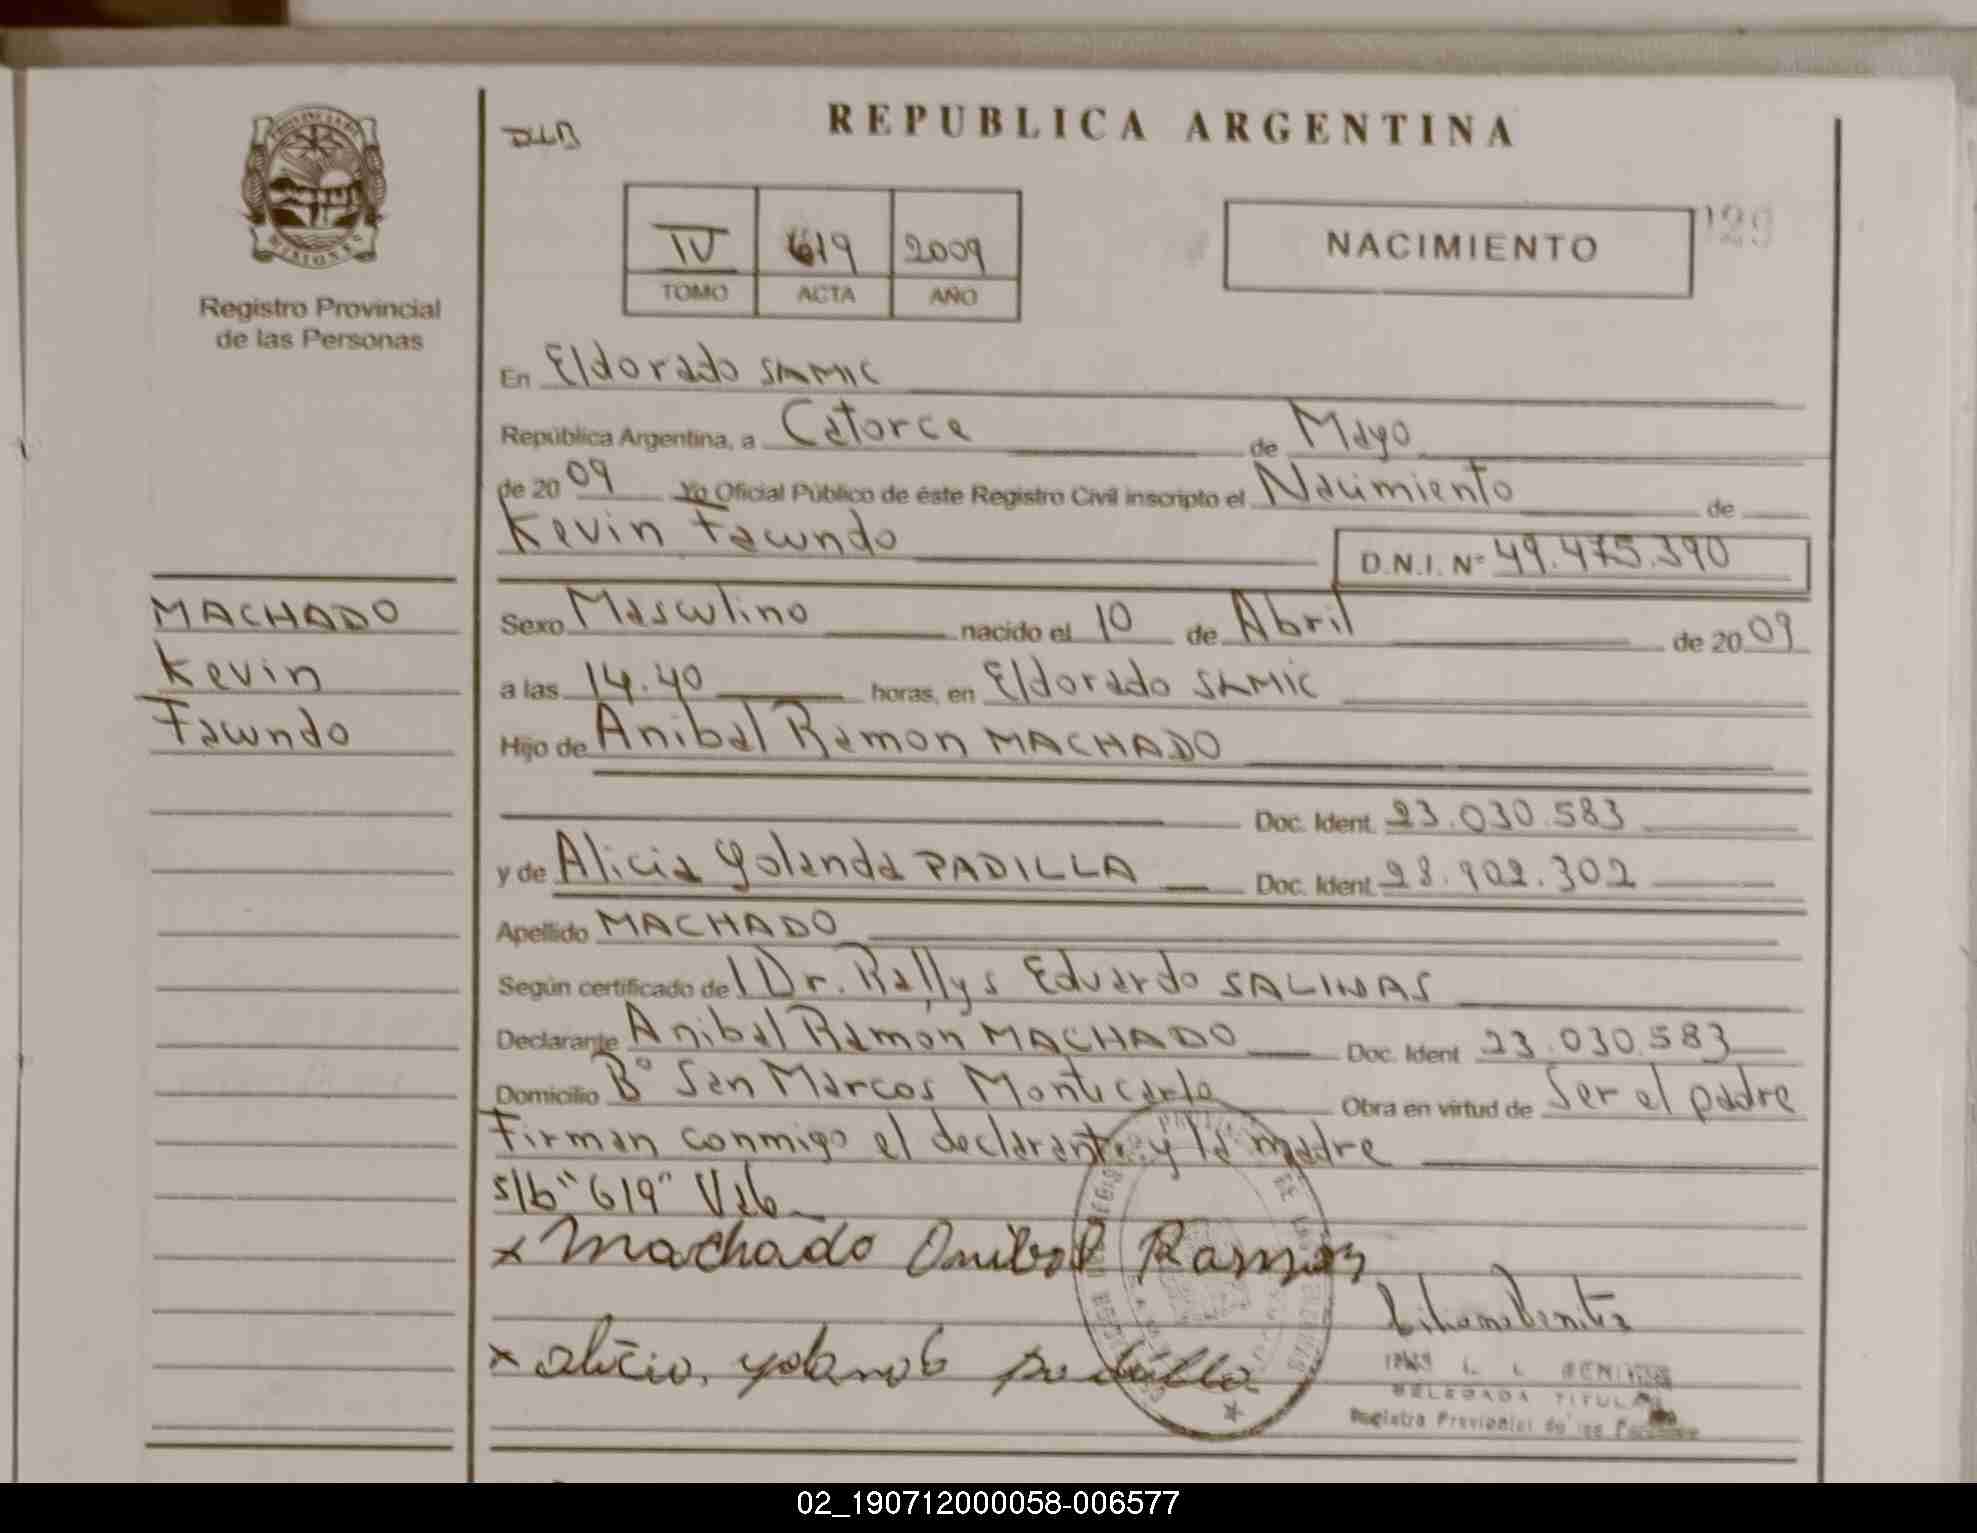 REPUBLICA ARGENTINA
IV 619 2009
TOMO ACTA AÑO
NACIMIENTO
129
MISIONES
Registro Provincial
de las Personas
En Eldorado SAMIC
República Argentina, a Catorce de Mayo
de 2009 Yo Oficial Público de éste Registro Civil inscripto el Nacimiento de
Kevin Facundo D.N.I. Nº 49.475.390
MACHADO
Kevin
Facundo
Sexo Masculino nacido el 10 de Abril de 2009
a las 14.40 horas, en Eldorado SAMIC
Hijo de Anibal Ramon MACHADO
Doc. Ident. 23.030.583
y de Alicia Yolanda PADILLA Doc. Ident. 28.902.302
Apellido MACHADO
Según certificado del Dr. Rallys Eduardo SALINAS
Declarante Anibal Ramón MACHADO Doc. Ident 23.030.583
Domicilio Bº San Marcos Montecarlo Obra en virtud de Ser el padre
Firman conmigo el declarante y la madre
s/b "619" Vale
x Machado Anibal Ramon
x alicia, yolanda padilla
Liliana Benitez
L. L. BENITEZ
DELEGADA TITULAR
Registro Provincial de las Personas
02_190712000058-006577